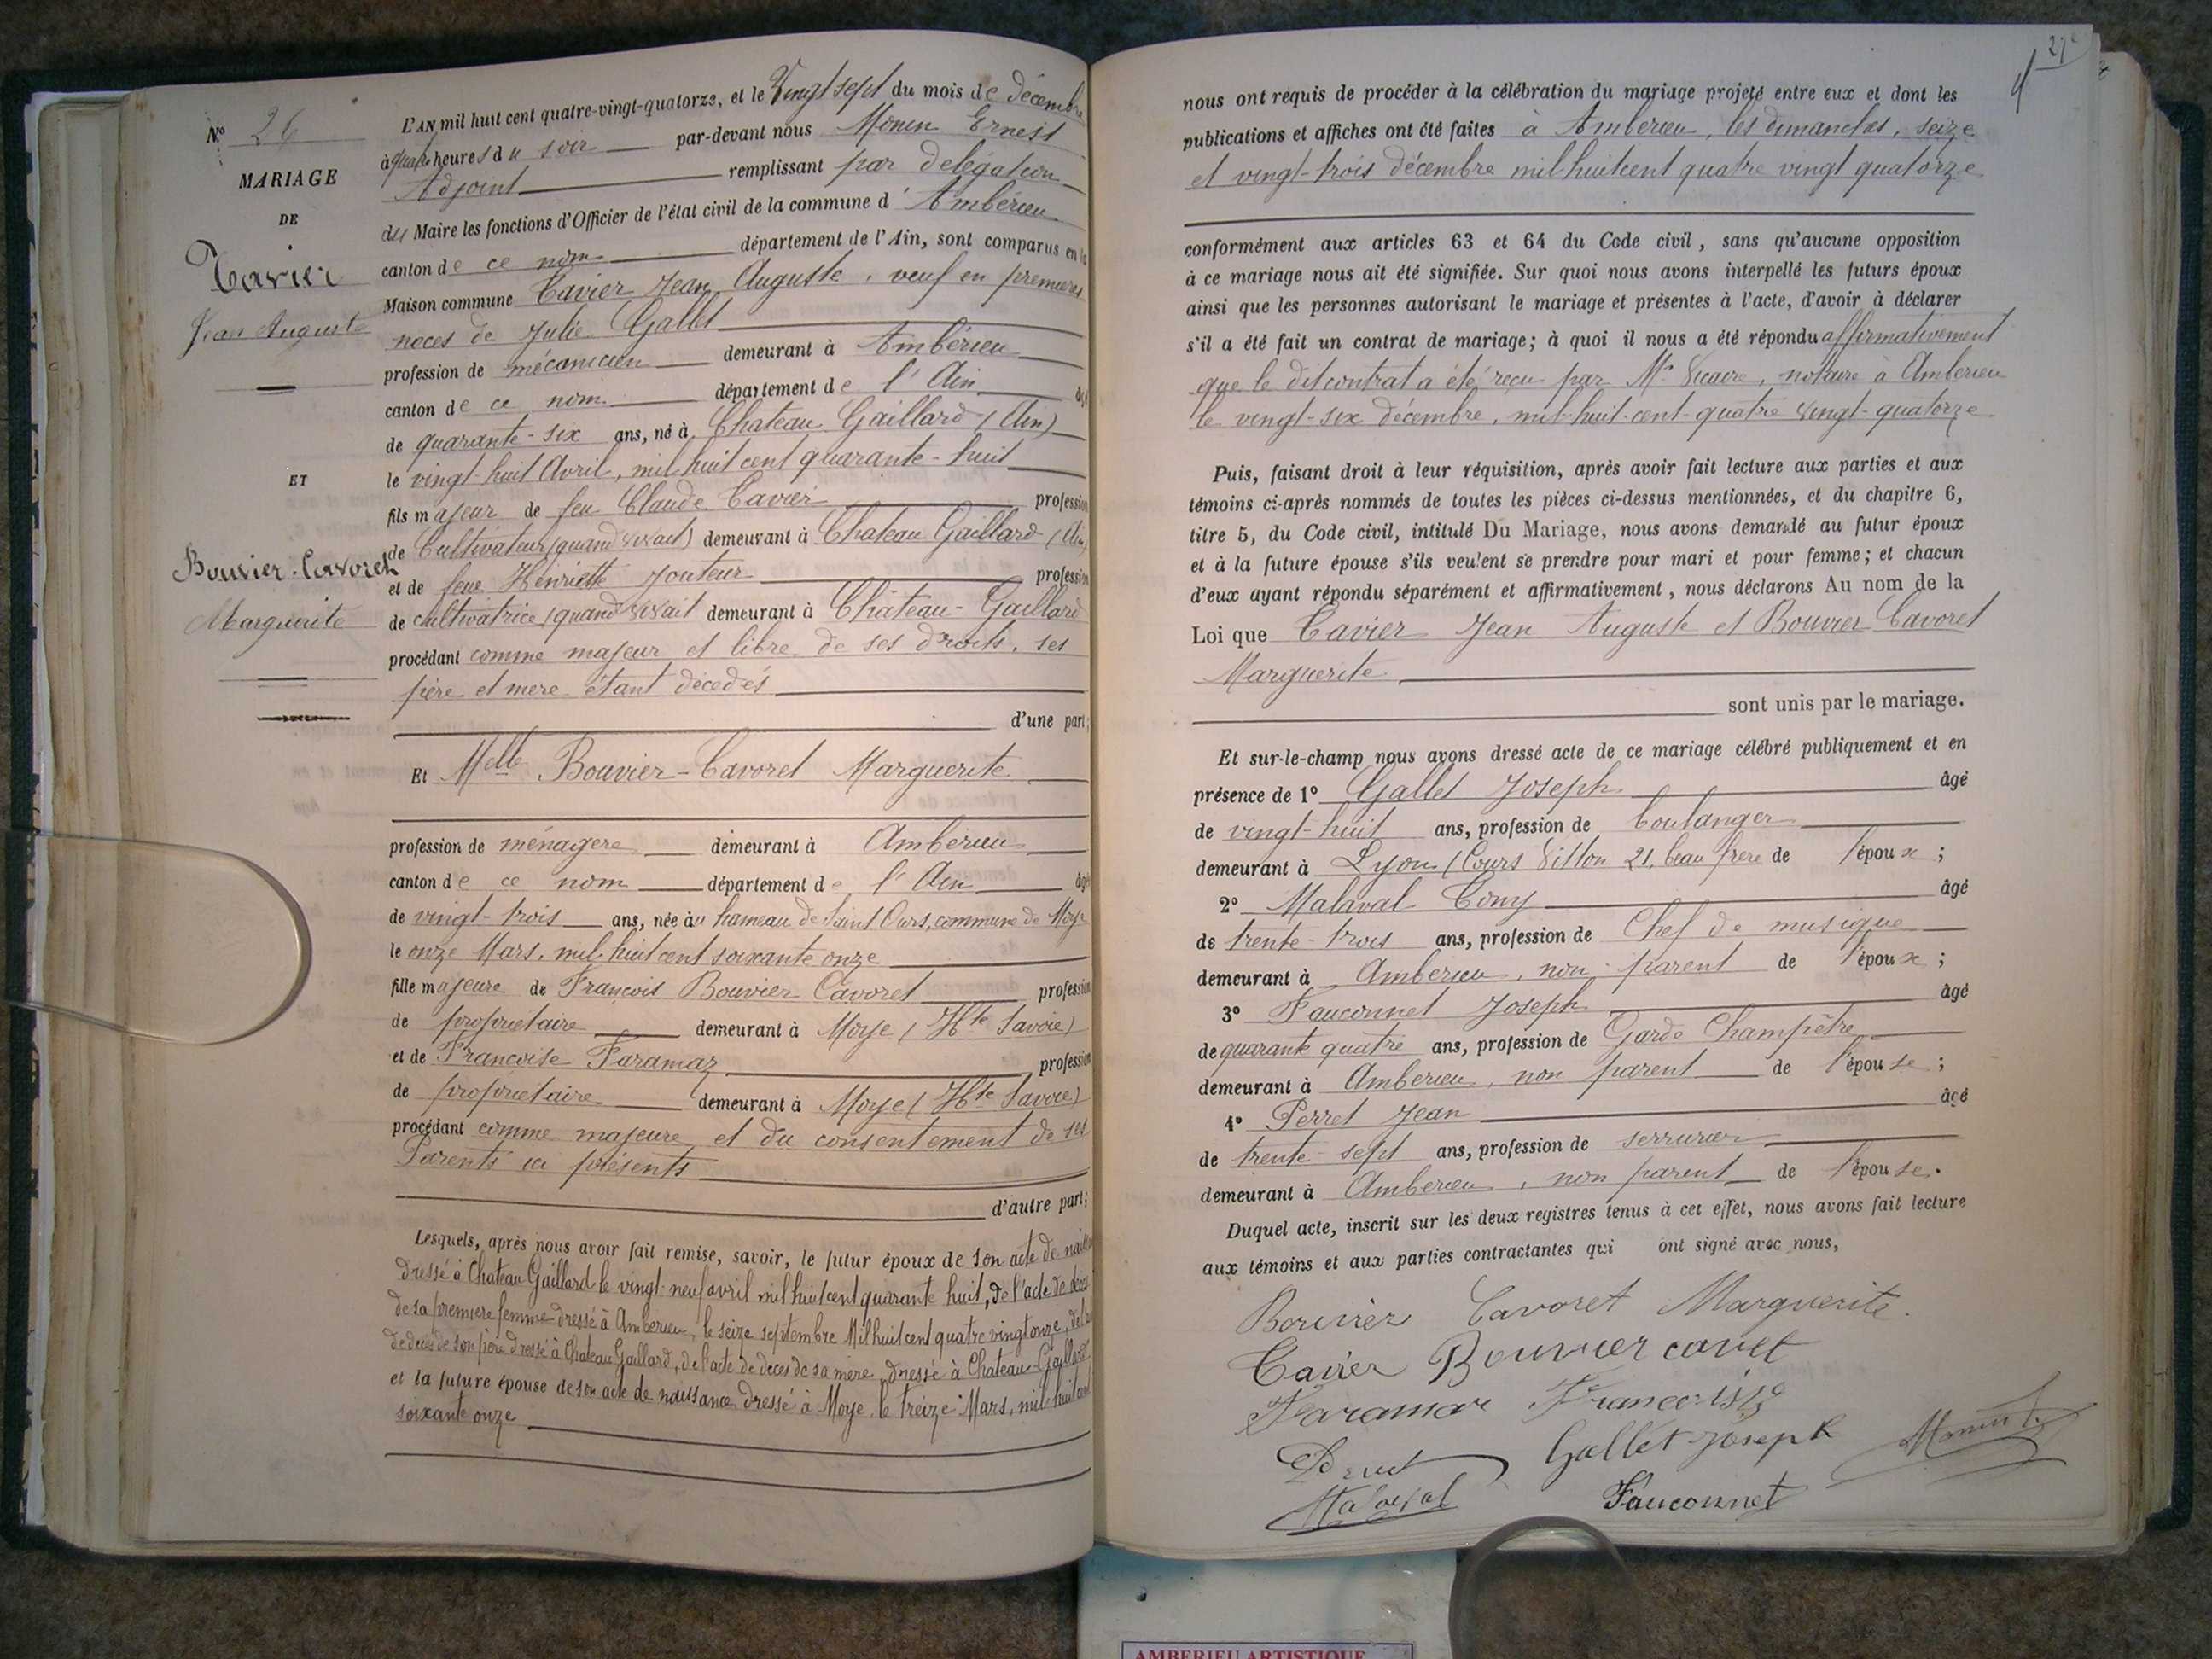 N° 26
MARIAGE
DE
Tavier
Jean Auguste
ET
Bouvier-Cavoret
Marguerite
L'AN mil huit cent quatre-vingt-quatorze, et le Vingt sept du mois de décembre
à quatre heures du soir par-devant nous Monin Ernest
Adjoint remplissant par délégation
du Maire les fonctions d'Officier de l'état civil de la commune d'Ambérieu
canton de ce nom département de l'Ain, sont comparus en la
Maison commune Tavier Jean Auguste, veuf en premières
noces de Julie Gallet
profession de mécanicien demeurant à Ambérieu
canton de ce nom département de l'Ain âgé
de quarante-six ans, né à Chateau Gaillard (Ain)
le vingt-huit Avril, mil huit cent quarante-huit
fils majeur de feu Claude Tavier profession
de Cultivateur (quand vivait) demeurant à Chateau Gaillard (Ain)
et de feue Henriette Jouteur profession
de cultivatrice (quand vivait demeurant à Château-Gaillard
procédant comme majeur et libre de ses droits, ses
père et mère étant décédés
d'une part;
Et Melle Bouvier-Cavoret Marguerite
profession de ménagère demeurant à Ambérieu
canton de ce nom département de l'Ain âgé
de vingt-trois ans, née au hameau de Saint Ours, commune de Moye
le onze Mars, mil huit cent soixante onze
fille majeure de François Bouvier Cavoret profession
de propriétaire demeurant à Moye (Hte Savoie)
et de Françoise Faramaz profession
de propriétaire demeurant à Moye (Hte Savoie)
procédant comme majeure et du consentement de ses
Parents ici présents
d'autre part;
Lesquels, après nous avoir fait remise, savoir, le futur époux de son acte de naiss
dressé à Chateau Gaillard le vingt-neuf avril mil huit cent quarante huit, de l'acte de décès
de sa première femme dressé à Ambérieu, le seize septembre Mil huit cent quatre vingt onze, de l'
de décès de son père dressé à Chateau Gaillard, de l'acte de décès de sa mère dressé à Chateau-Gaillard
et la future épouse de son acte de naissance dressé à Moye le treize Mars, mil huit cent
soixante onze
27e
nous ont requis de procéder à la célébration du mariage projeté entre eux et dont les
publications et affiches ont été faites à Ambérieu, les dimanches, seize
et vingt-trois décembre mil huit cent quatre vingt quatorze
conformément aux articles 63 et 64 du Code civil, sans qu'aucune opposition
à ce mariage nous ait été signifiée. Sur quoi nous avons interpellé les futurs époux
ainsi que les personnes autorisant le mariage et présentes à l'acte, d'avoir à déclarer
s'il a été fait un contrat de mariage; à quoi il nous a été répondu affirmativement
que le dit contrat a été reçu par Me Vicaire, notaire à Ambérieu
le vingt-six décembre, mil-huit-cent-quatre vingt-quatorze
Puis, faisant droit à leur réquisition, après avoir fait lecture aux parties et aux
témoins ci-après nommés de toutes les pièces ci-dessus mentionnées, et du chapitre 6,
titre 5, du Code civil, intitulé Du Mariage, nous avons demandé au futur époux
et à la future épouse s'ils veulent se prendre pour mari et pour femme; et chacun
d'eux ayant répondu séparément et affirmativement, nous déclarons Au nom de la
Loi que Tavier Jean Auguste et Bouvier Cavoret
Marguerite
sont unis par le mariage.
Et sur-le-champ nous avons dressé acte de ce mariage célébré publiquement et en
présence de 1° Gallet Joseph âgé
de vingt-huit ans, profession de boulanger
demeurant à Lyon (Cours Vitton 21, beau frère de l'époux;
2° Malaval Tony âgé
de trente-trois ans, profession de Chef de musique
demeurant à Ambérieu, non parent de l'époux;
3° Fauconnet Joseph âgé
de quarante quatre ans, profession de Garde Champêtre
demeurant à Ambérieu, non parent de l'épouse;
4° Perret Jean âgé
de trente-sept ans, profession de serrurier
demeurant à Ambérieu, non parent de l'épouse.
Duquel acte, inscrit sur les deux registres tenus à cet effet, nous avons fait lecture
aux témoins et aux parties contractantes qui ont signé avec nous,
Bouvier Cavoret Marguerite.
Tavier Bouvier cavret
Faramar Françoise
Perret Gallet Joseph Monin
Malaval Fauconnet
AMBERIEU ARTISTIQUE